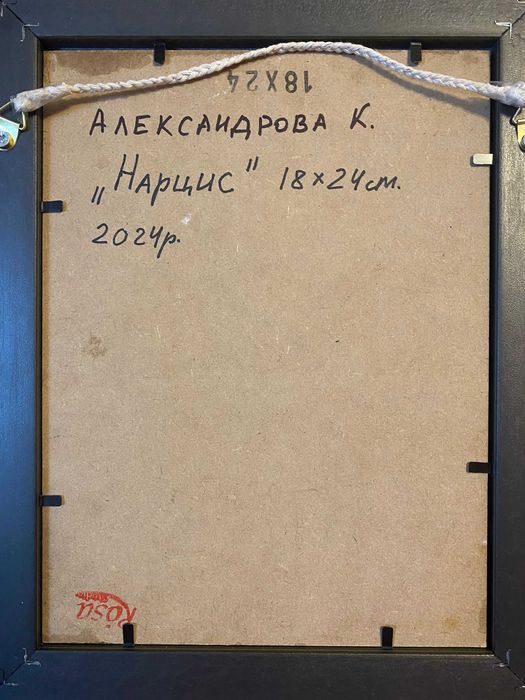 18X24
АЛЕКСАНДРОВА К.
„НАРЦИС" 18×24см.
2024р.
Rosa